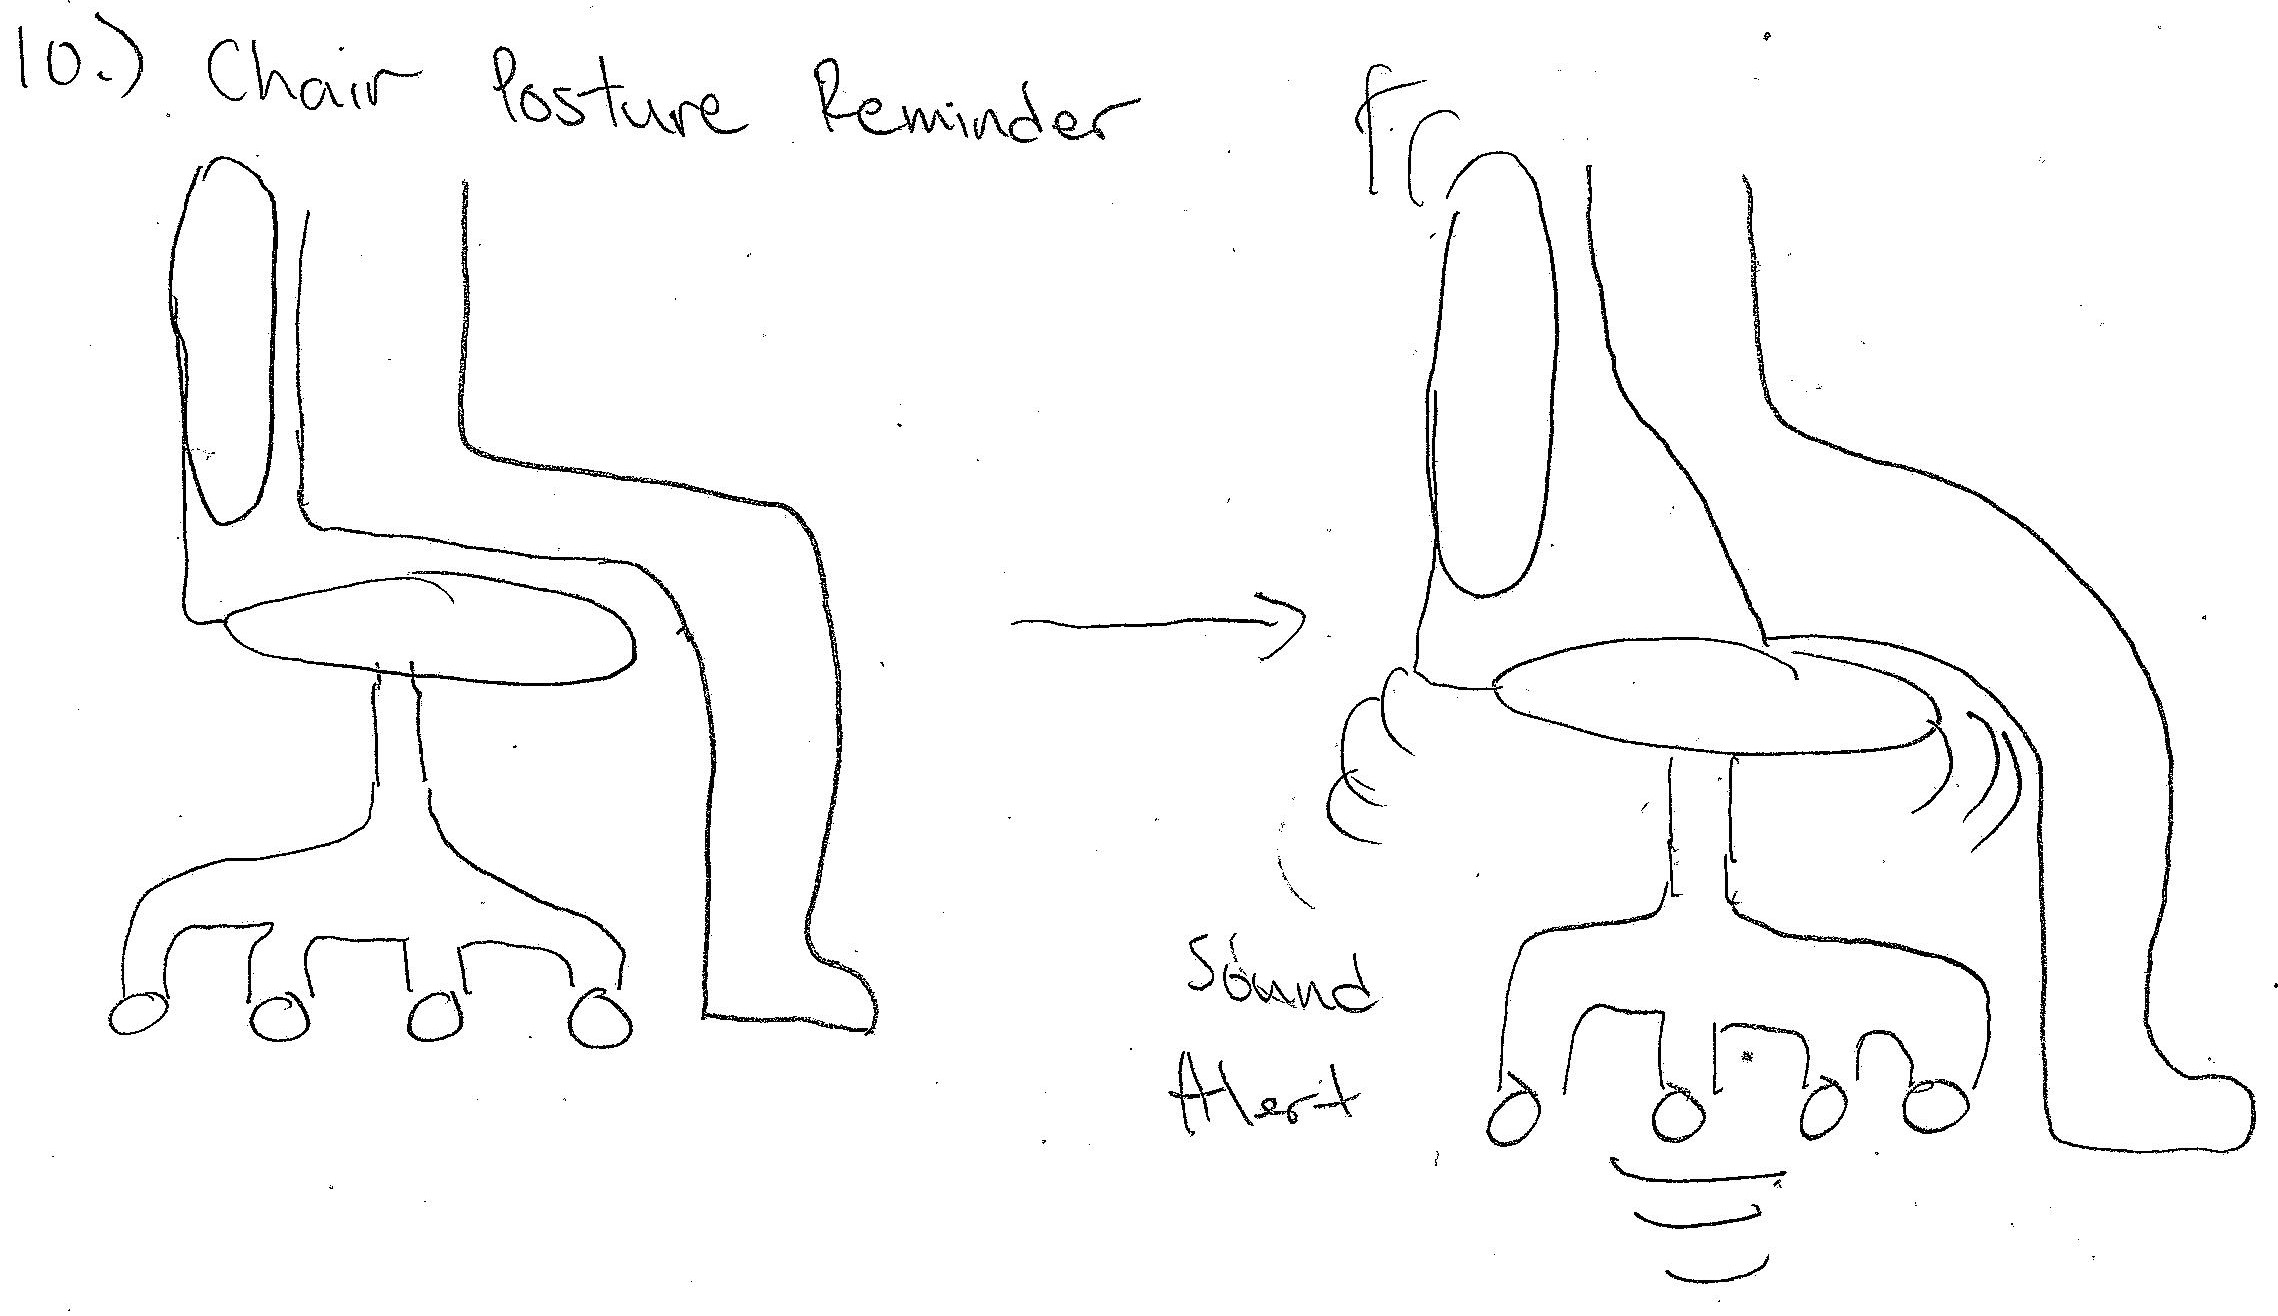 10.) Chair Posture Reminder
Sound
Alert